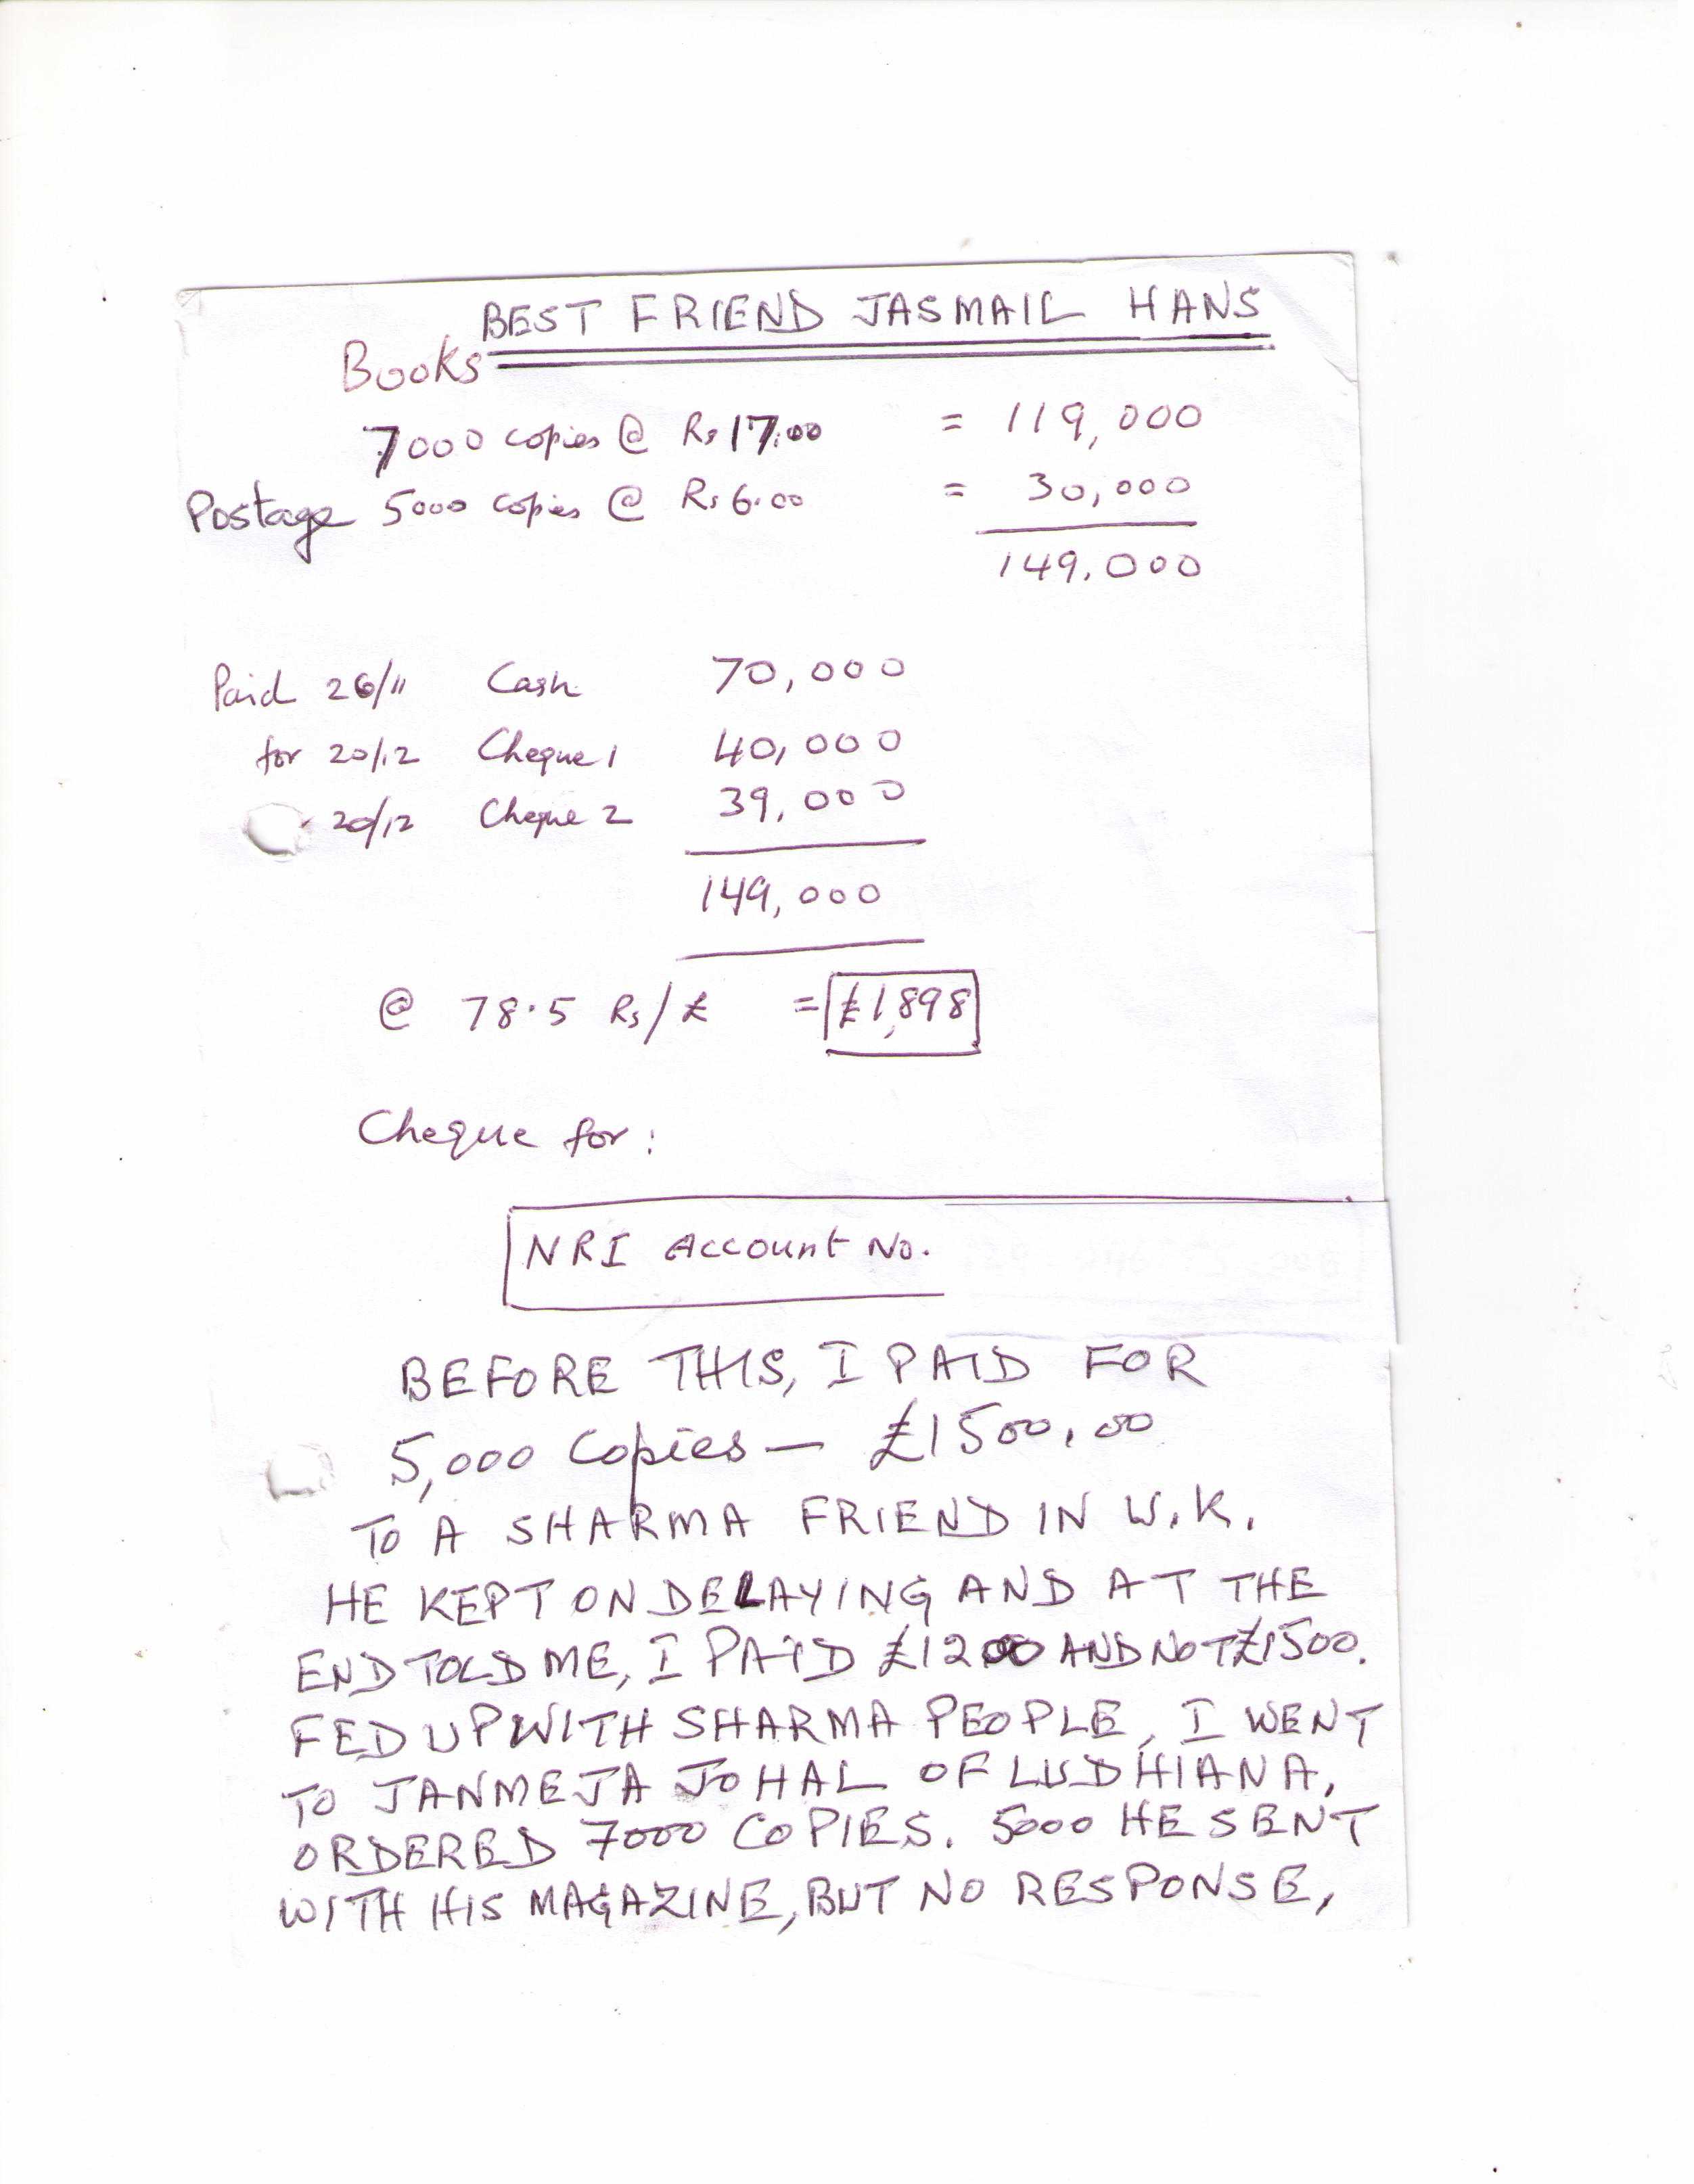 BEST FRIEND JASMAIL HANS
Books
7000 copies @ Rs 17.00 = 119,000
Postage 5000 copies @ Rs 6.00 = 30,000
149,000
Paid 26/11 Cash 70,000
for 20/12 Cheque 1 40,000
20/12 Cheque 2 39,000
149,000
@ 78.5 Rs/£ = £1,898
Cheque for:
NRI Account No.
BEFORE THIS, I PAID FOR
5,000 Copies — £1500.00
TO A SHARMA FRIEND IN U.K.
HE KEPT ON DELAYING AND AT THE
END TOLD ME, I PAID £1200 AND NOT £1500.
FED UP WITH SHARMA PEOPLE, I WENT
TO JANMEJA JOHAL OF LUDHIANA,
ORDERED 7000 COPIES. 5000 HE SENT
WITH HIS MAGAZINE, BUT NO RESPONSE,